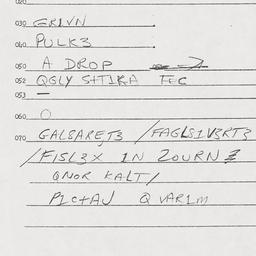 020
030 GRIVN
040 PULK3
050 A DROP
052 QGLY SHTIRA FEC
053 —
060 O
070 GALSARETS /FAGLSIV3RT3
/FISL3X IN ZOURN 3
QNOR KALT/
PICTAJ Q VARIM